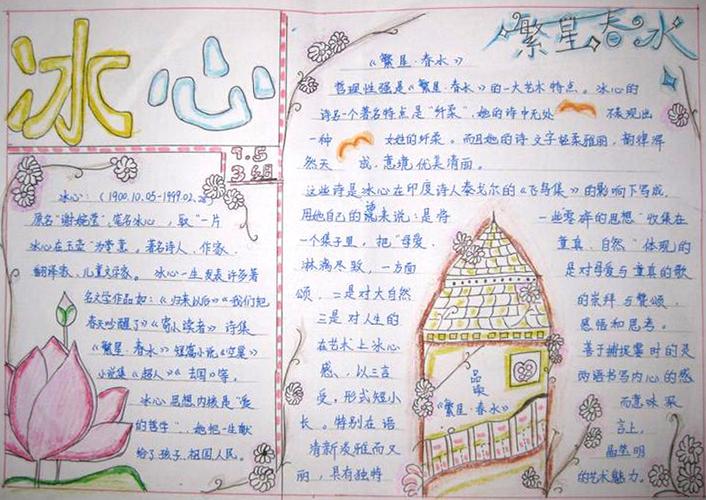 冰心
7.5
3组
冰心：（1900.10.05-1999.02.
原名"谢婉莹"，笔名冰心，取"一片
冰心在玉壶"为意。著名诗人、作家、
翻译家、儿童文学家。冰心一生发表许多著
名文学作品如：《归来以后》《我们把
春天吵醒了》《寄小读者》诗集
《繁星·春水》短篇小说《空巢》
小说集《超人》《去国》等。
冰心思想内核是"爱
的哲学"，她把一生献
给了孩子、祖国人民。
繁星 春水
《繁星·春水》
哲理性强是《繁星·春水》的一大艺术特点。冰心的
诗名一个著名特点是"纤柔"，她的诗中无处 不表现出
一种 女性的纤柔。而且她的诗文字轻柔雅丽，韵律浑
然天 成，意境优美清丽。
这些诗是冰心在印度诗人泰戈尔的《飞鸟集》的影响下写成，
用他自己的话来说：是将 一些零碎的思想"收集在
一个集子里，把"母爱、 童真、自然"体现的
淋漓尽致，一方面 是对母爱与童真的歌
颂，二是对大自然 的崇拜与赞颂，
三是对人生的 感悟和思考。
在艺术上冰心 善于捕捉霎时的灵
感，以三言 两语书写内心的感
受，形式短小 而意味深
长。特别在语 言上，
清新凌雅而又 晶莹明
丽，具有独特 的艺术魅力。
品
读
《繁星·春水》